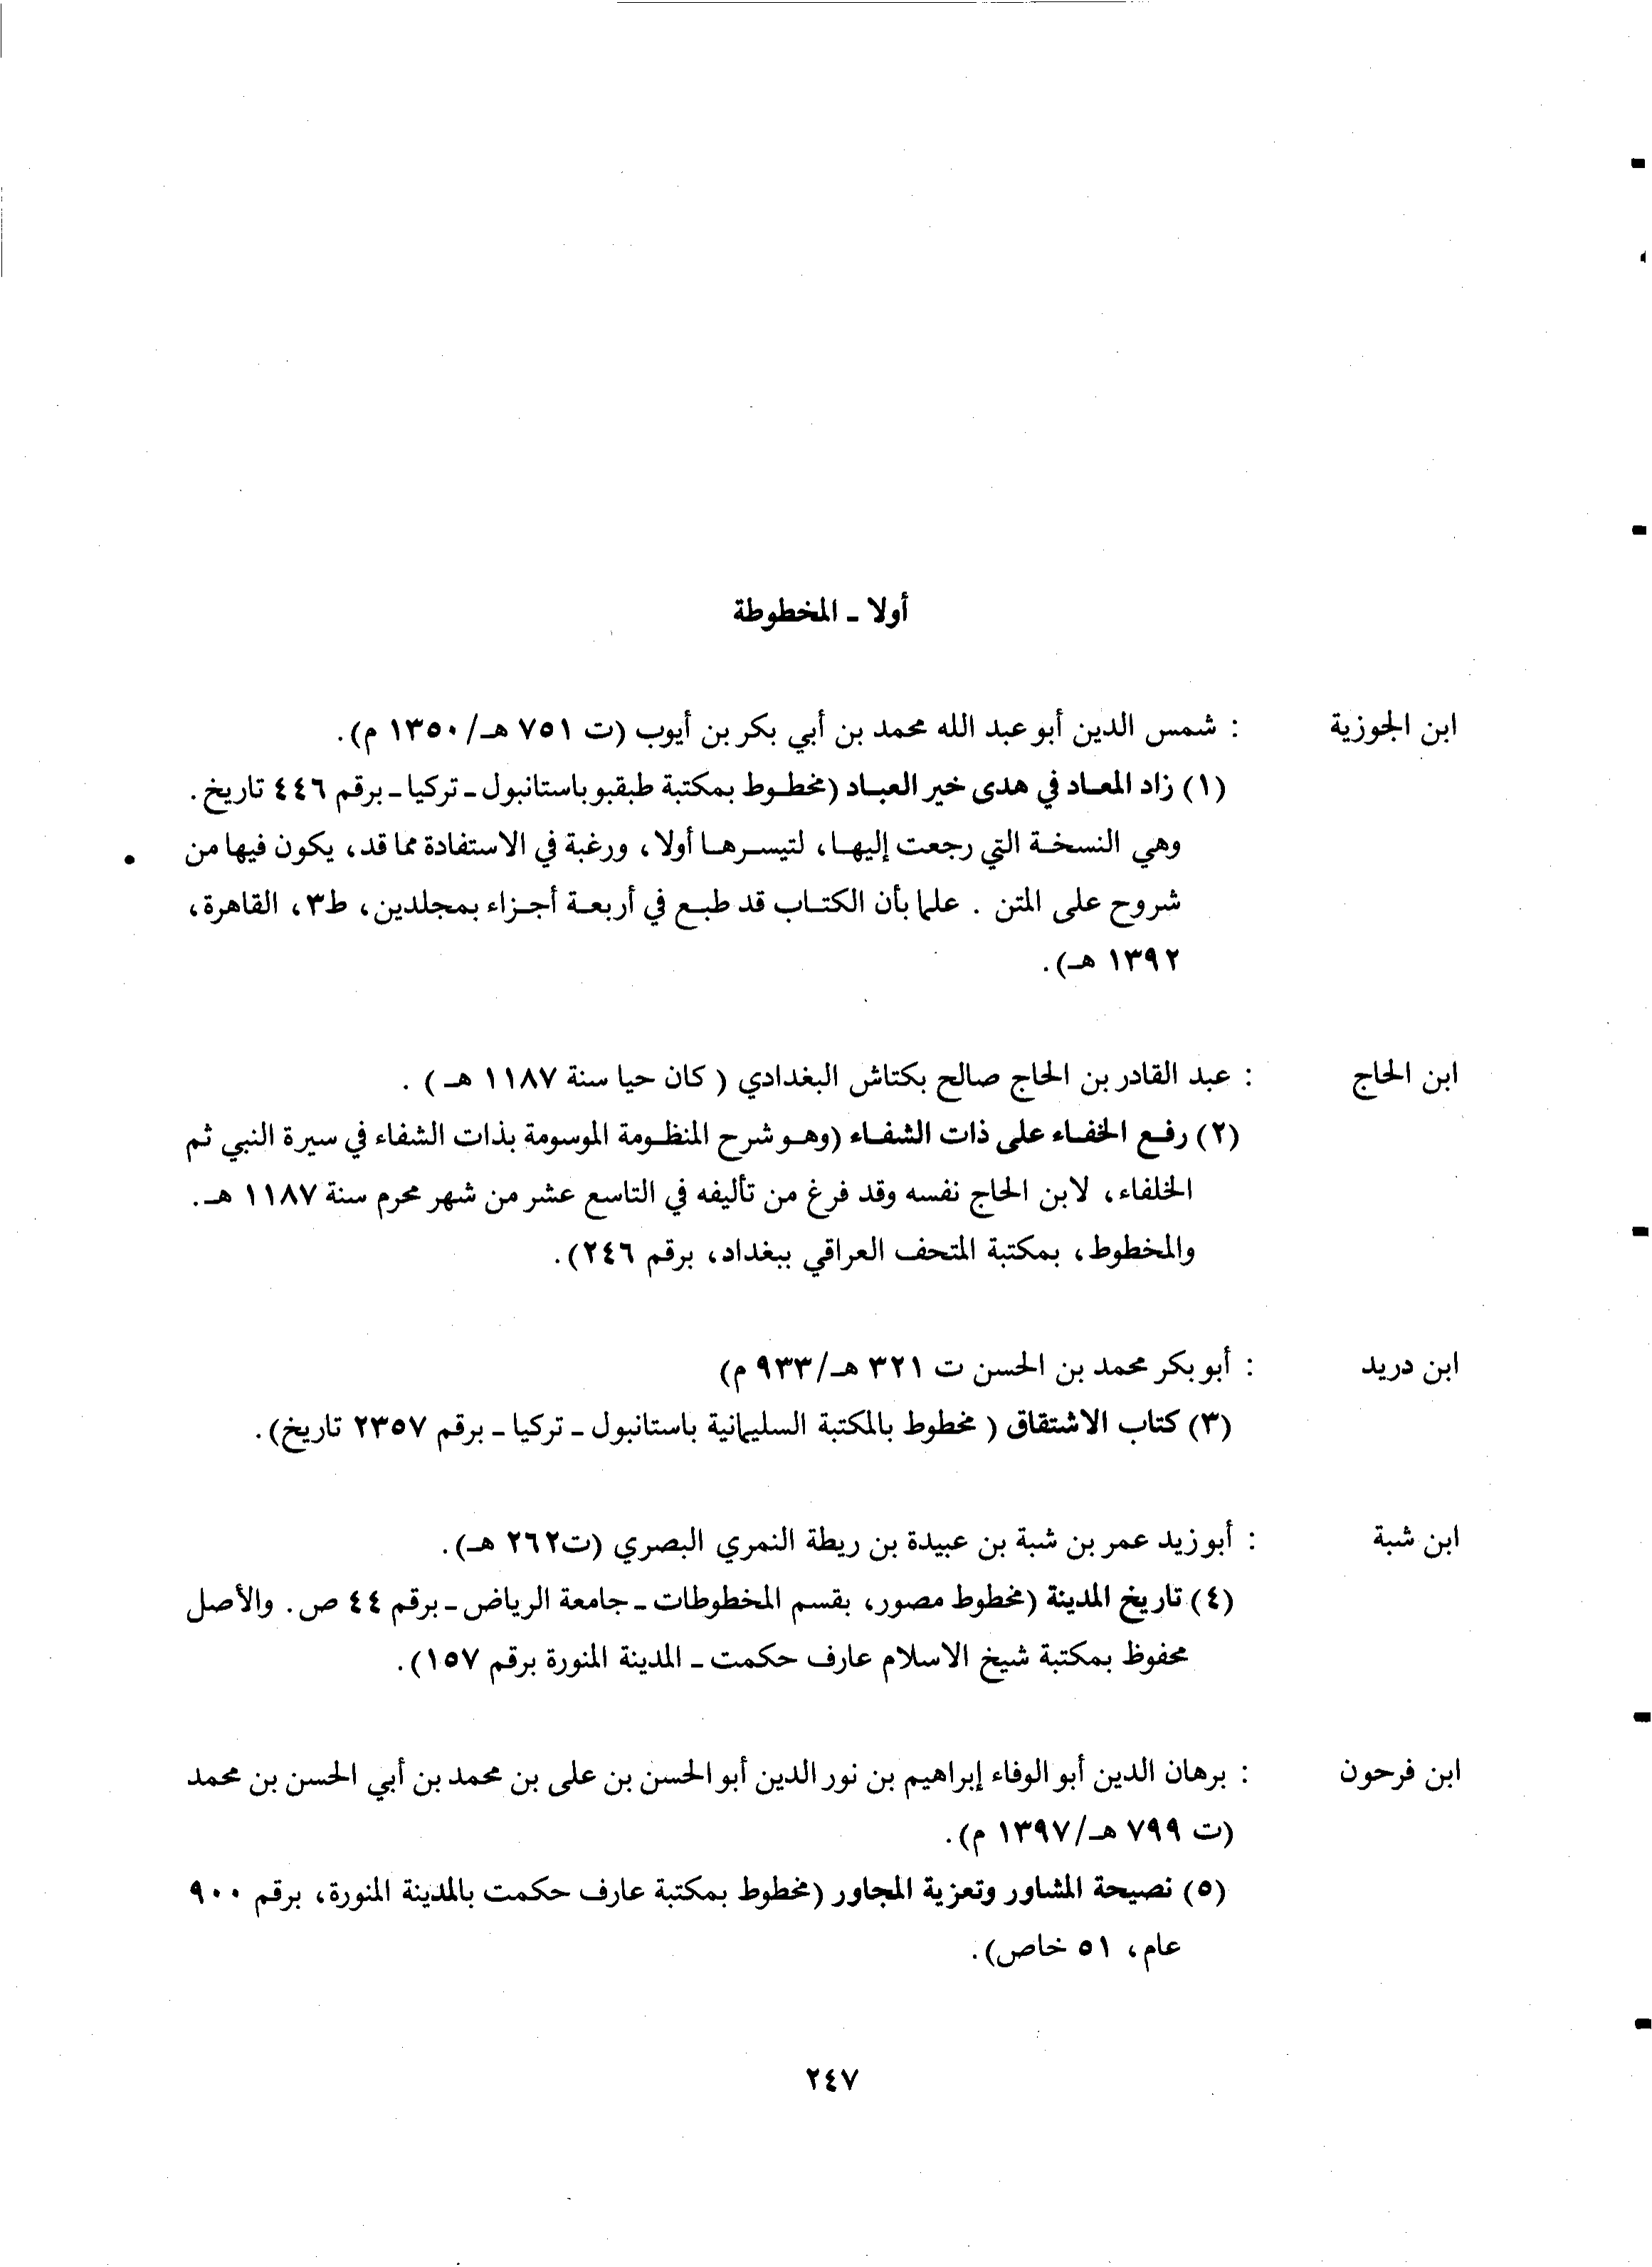 أولا ـ المخطوطة
ابن الجوزية : شمس الدين أبو عبد الله محمد بن أبي بكر بن أيوب (ت ٧٥١ هـ/١٣٥٠ م).
(١) زاد المعـاد في هدى خير العبـاد (مخطـوط بمكتبة طبقبو باستانبول ـ تركيا ـ برقم ٤٤٦ تاريخ.
وهي النسخـة التي رجعت إليهـا، لتيسـرهـا أولا، ورغبة في الاستفادة مما قد، يكون فيها من
شروح على المتن . علما بأن الكتـاب قد طبـع في أربعـة أجـزاء بمجلدين، ط٣، القاهرة،
١٣٩٢ هـ).
ابن الحاج : عبد القادر بن الحاج صالح بكتاش البغدادي ( كان حيا سنة ١١٨٧ هـ ) .
(٢) رفـع الخفـاء على ذات الشفـاء (وهـو شرح المنظـومة الموسومة بذات الشفاء في سيرة النبي ثم
الخلفاء، لابن الحاج نفسه وقد فرغ من تأليفه في التاسع عشر من شهر محرم سنة ١١٨٧ هـ.
والمخطوط، بمكتبة المتحف العراقي ببغداد، برقم ٢٤٦).
ابن دريد : أبو بكر محمد بن الحسن ت ٣٢١ هـ/٩٣٣ م)
(٣) كتاب الاشتقاق ( مخطوط بالمكتبة السليمانية باستانبول ـ تركيا ـ برقم ٢٣٥٧ تاريخ).
ابن شبة : أبو زيد عمر بن شبة بن عبيدة بن ريطة النمري البصري (ت٢٦٢ هـ).
(٤) تاريخ المدينة (مخطوط مصور، بقسم المخطوطات ـ جامعة الرياض ـ برقم ٤٤ ص. والأصل
محفوظ بمكتبة شيخ الاسلام عارف حكمت ـ المدينة المنورة برقم ١٥٧).
ابن فرحون : برهان الدين أبو الوفاء إبراهيم بن نور الدين أبو الحسن بن على بن محمد بن أبي الحسن بن محمد
(ت ٧٩٩ هـ/١٣٩٧ م).
(٥) نصيحة المشاور وتعزية المجاور (مخطوط بمكتبة عارف حكمت بالمدينة المنورة، برقم ٩٠٠
عام، ٥١ خاص).
٢٤٧